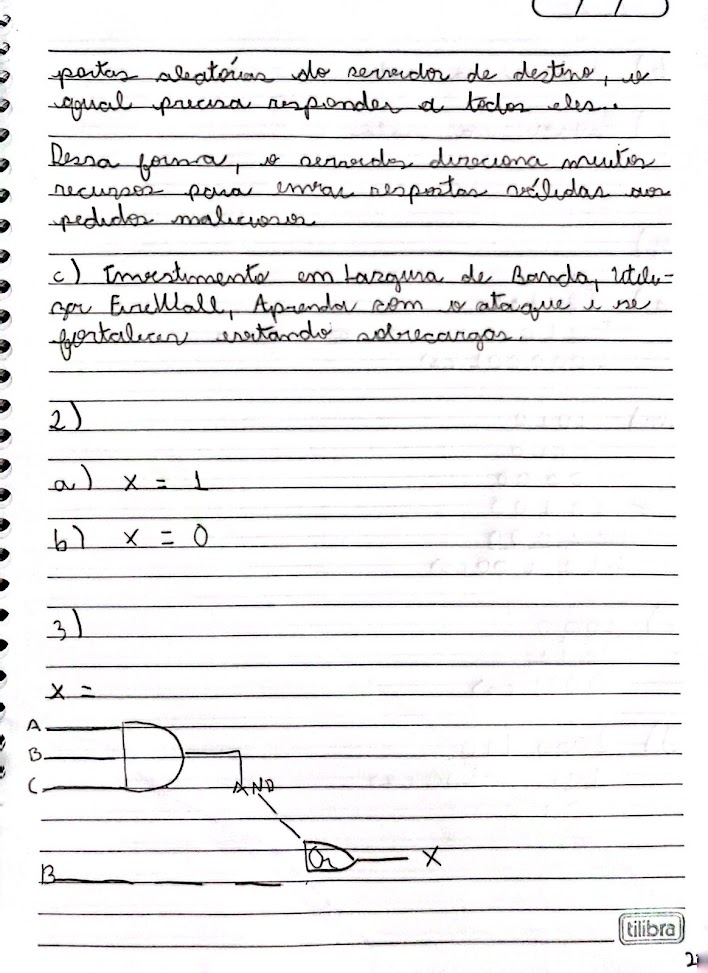 portas aleatórias do servidor de destino, o
qual precisa responder a todos eles..
Dessa forma, o servidor direciona muitos
recursos para enviar respostas válidas aos
pedidos maliciosos
c) Investimento em Largura de Banda, Utili-
zar FireWall, Aprenda com o ataque e se
fortalecer evitando sobrecargas.
2)
a) x = 1
b) x = 0
3)
x =
A
B
C
AND
Or
X
B
tilibra